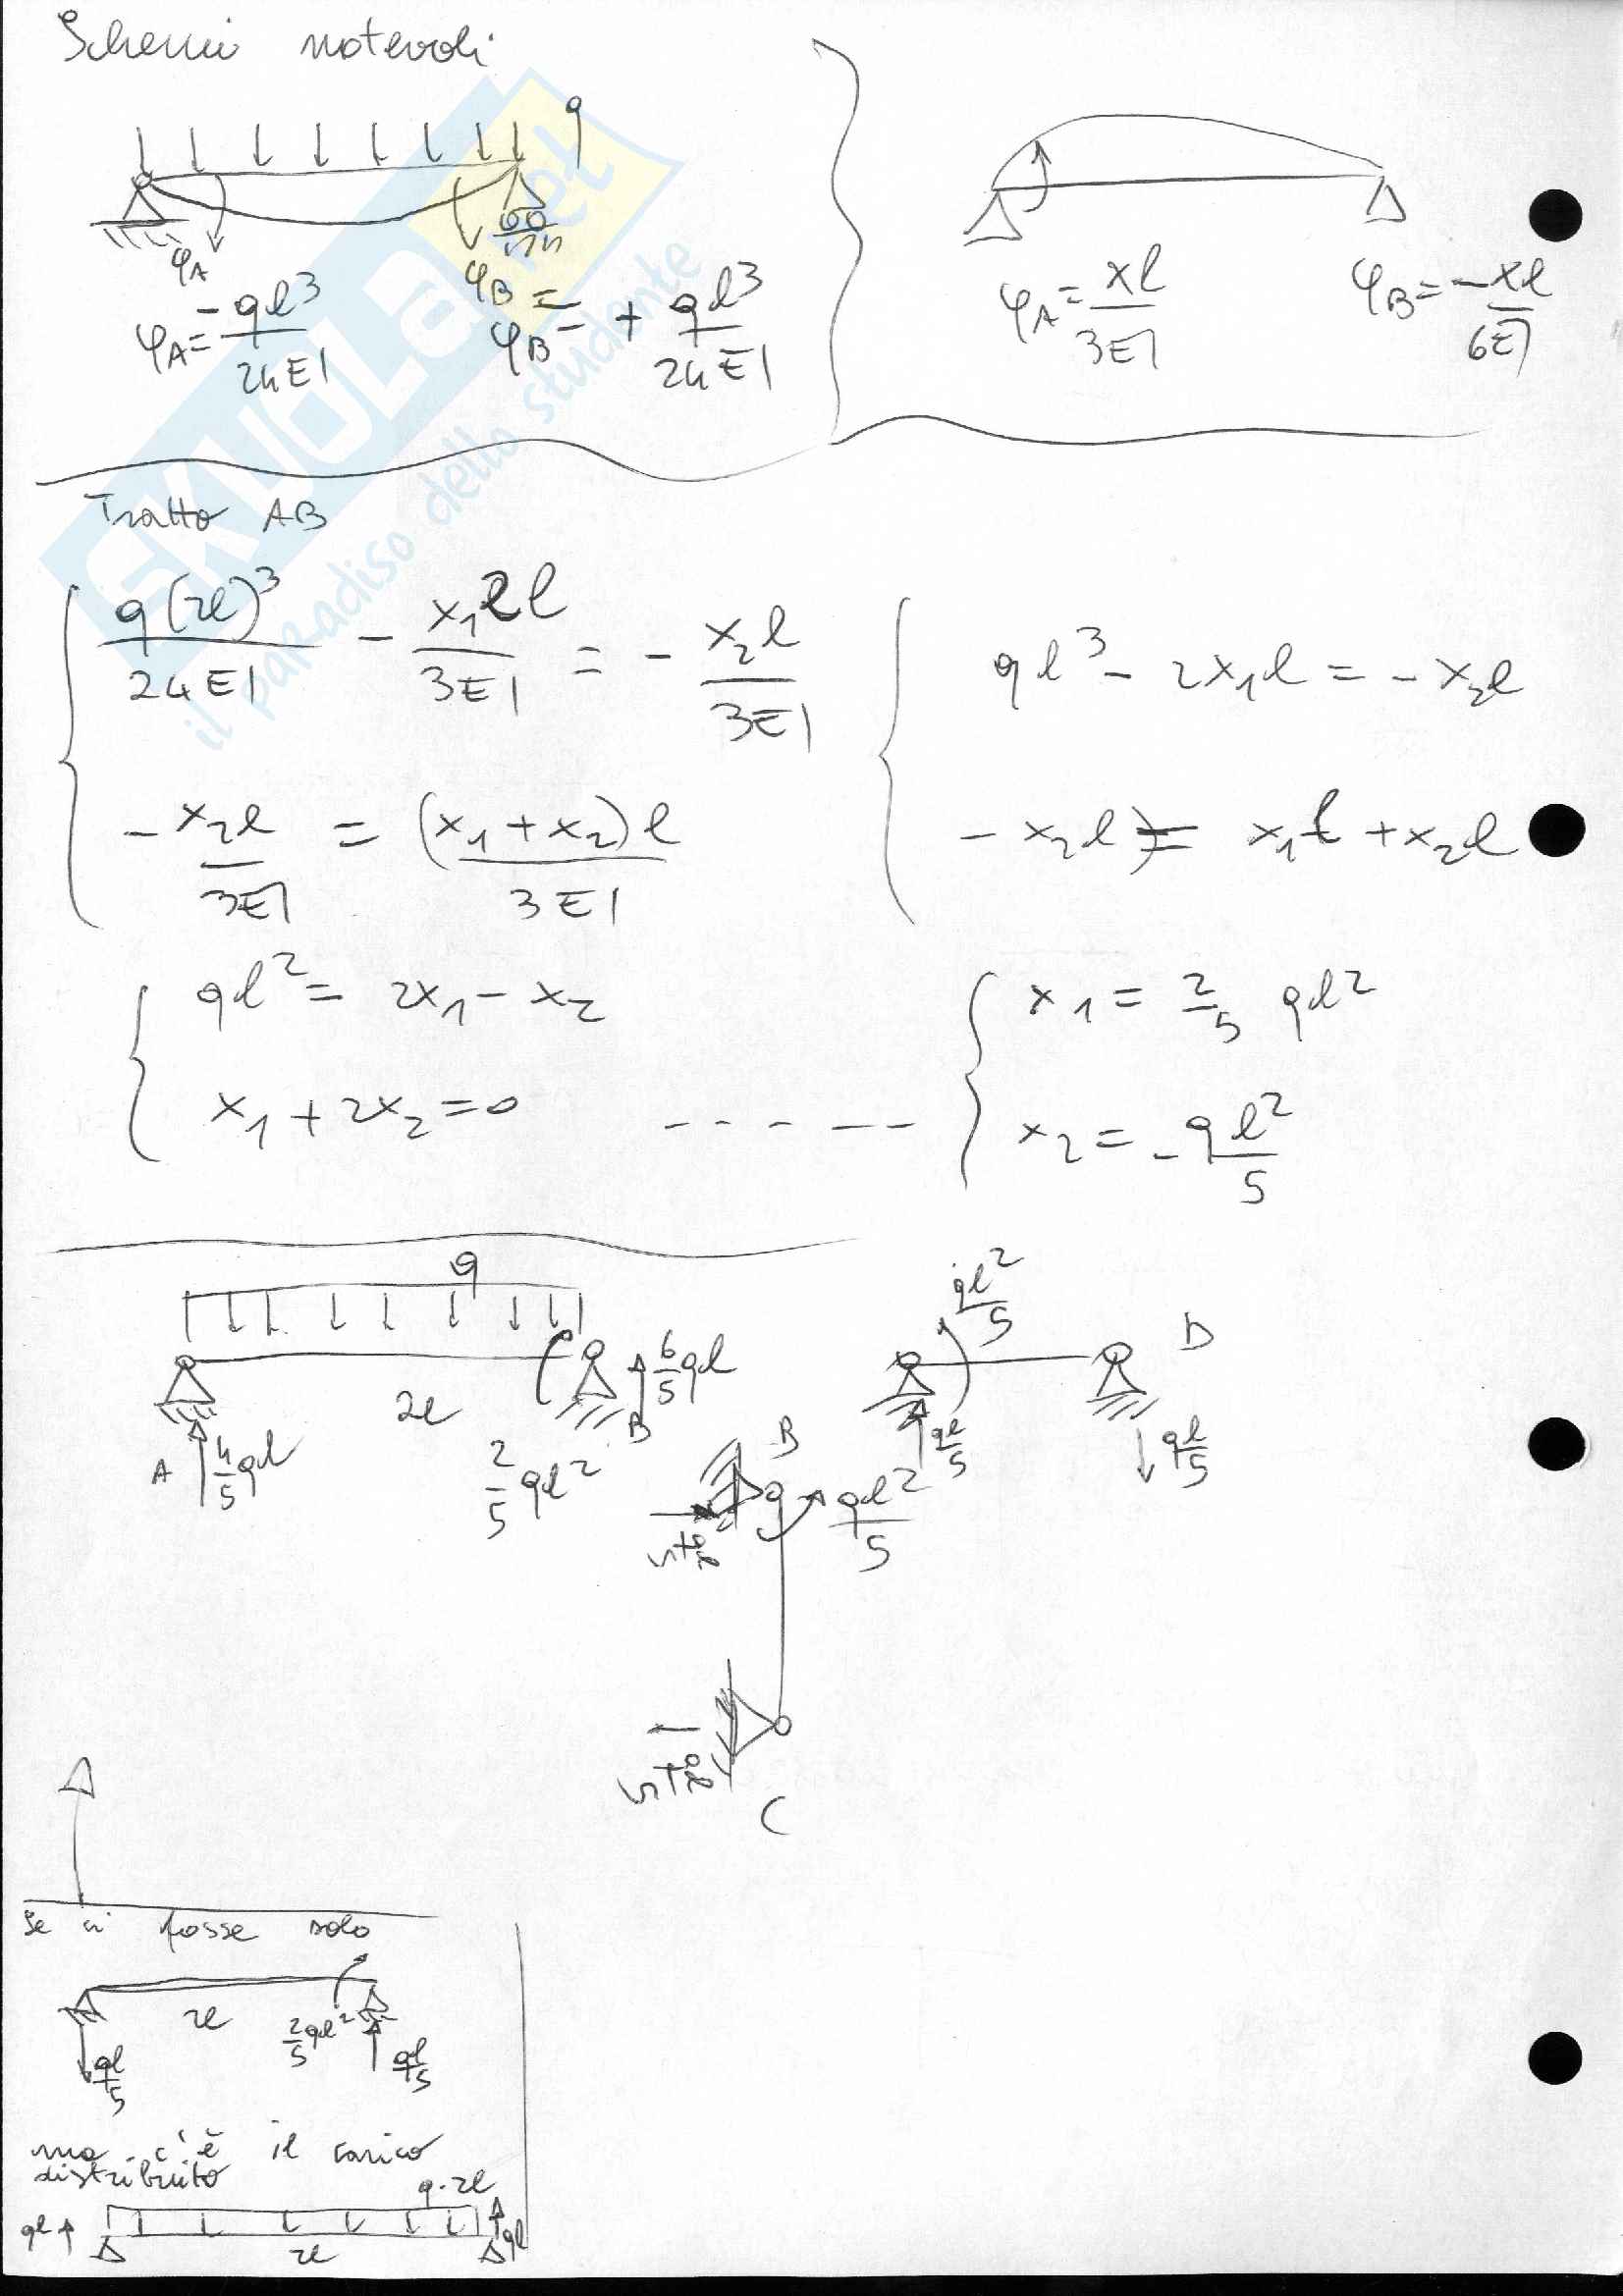 Schemi notevoli
q
φA
φB =
φA = -ql³/24EI
φB = + ql³/24EI
φA = xl/3EI
φB = -xl/6EI
SKUOLA.net
il paradiso dello studente
Tratto AB
q(2l)³/24EI - x₁2l/3EI = - x₂l/3EI
ql³ - 2x₁l = - x₂l
- x₂l/3EI = (x₁+x₂)l/3EI
- x₂l = x₁l + x₂l
ql² = 2x₁ - x₂
x₁ = 2/5 ql²
x₁ + 2x₂ = 0 ------
x₂ = - ql²/5
q
ql²/5
D
6/5 ql
2l
B
A
4/5 ql
2/5 ql²
ql/5
ql/5
B
ql²/5
ql/5
ql/5
C
Se ci fosse solo
2l
2/5 ql²
ql/5
ql/5
ma c'è il carico
distribuito
q·2l
ql
ql
2l